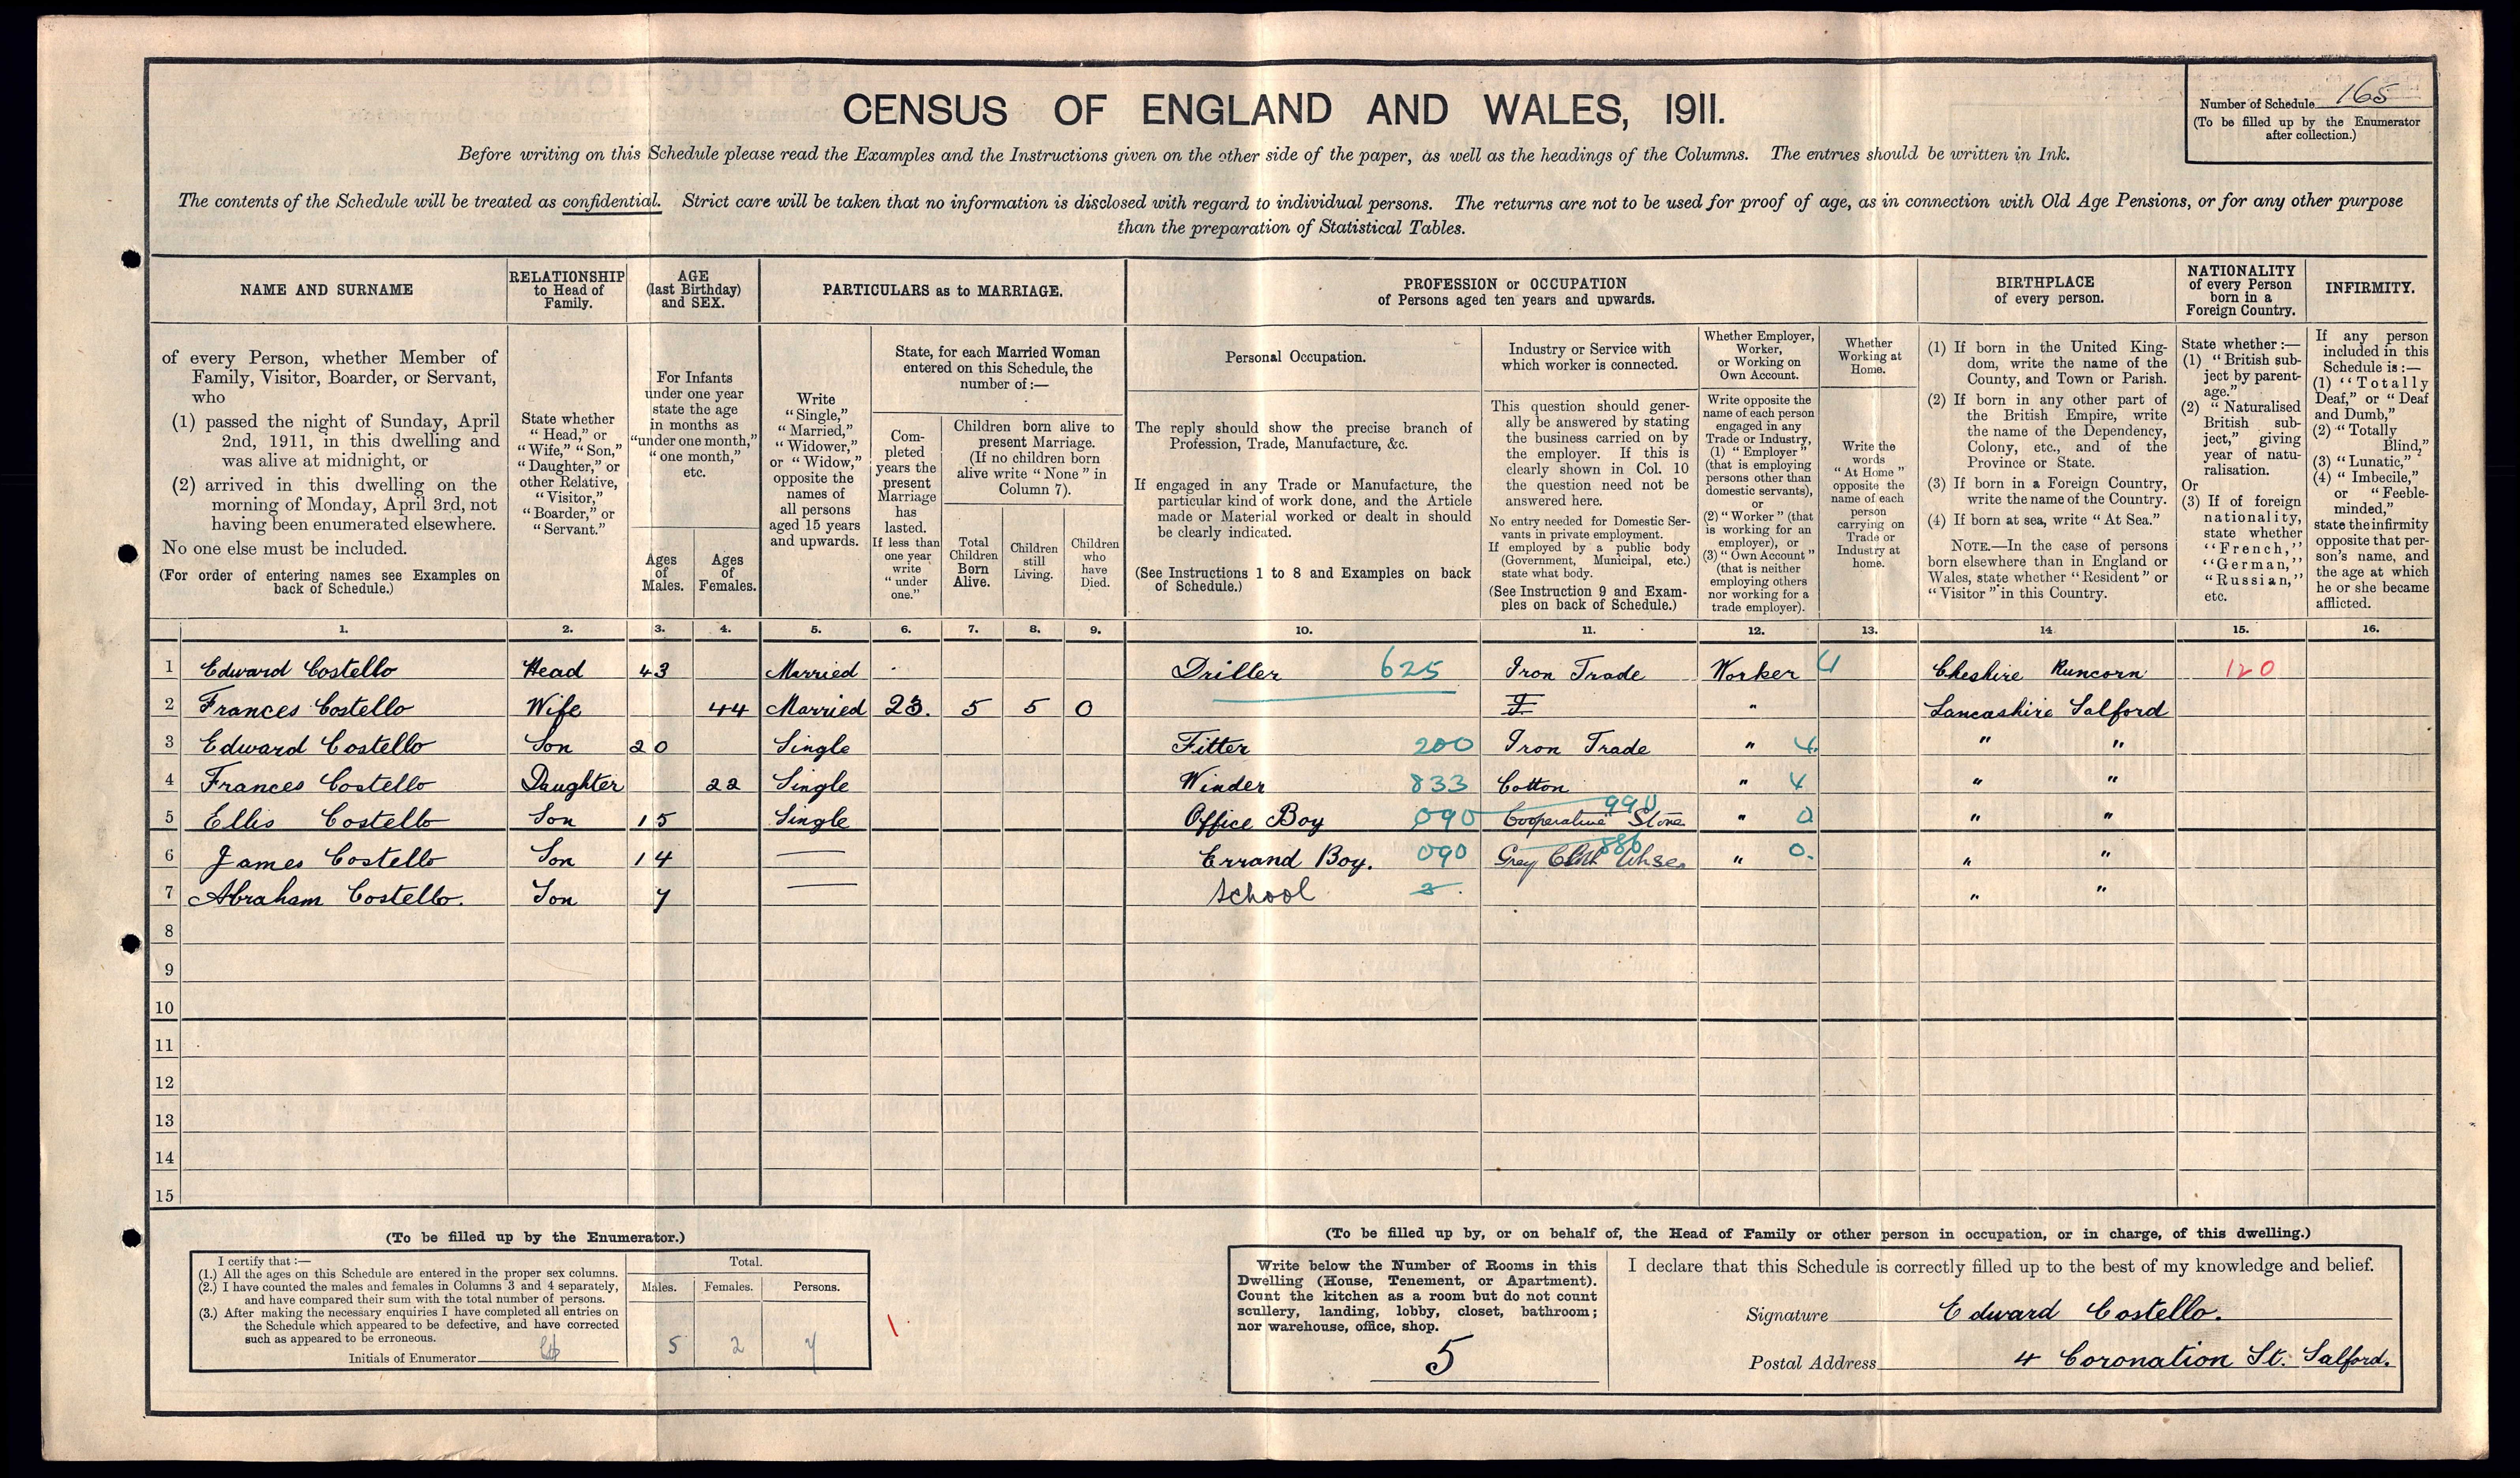 CENSUS OF ENGLAND AND WALES, 1911.
Number of Schedule 165
(To be filled up by the Enumerator after collection.)
Before writing on this Schedule please read the Examples and the Instructions given on the other side of the paper, as well as the headings of the Columns. The entries should be written in Ink.
The contents of the Schedule will be treated as confidential. Strict care will be taken that no information is disclosed with regard to individual persons. The returns are not to be used for proof of age, as in connection with Old Age Pensions, or for any other purpose
than the preparation of Statistical Tables.
NAME AND SURNAME
RELATIONSHIP to Head of Family.
AGE (last Birthday) and SEX.
PARTICULARS as to MARRIAGE.
PROFESSION or OCCUPATION
of Persons aged ten years and upwards.
BIRTHPLACE of every person.
NATIONALITY of every Person born in a Foreign Country.
INFIRMITY.
of every Person, whether Member of Family, Visitor, Boarder, or Servant, who
(1) passed the night of Sunday, April 2nd, 1911, in this dwelling and was alive at midnight, or
(2) arrived in this dwelling on the morning of Monday, April 3rd, not having been enumerated elsewhere.
No one else must be included.
(For order of entering names see Examples on back of Schedule.)
State whether "Head," or "Wife," "Son," "Daughter," or other Relative, "Visitor," "Boarder," or "Servant."
For Infants under one year state the age in months as "under one month," "one month," etc.
Ages of Males.
Ages of Females.
Write "Single," "Married," "Widower," or "Widow," opposite the names of all persons aged 15 years and upwards.
State, for each Married Woman entered on this Schedule, the number of:—
Completed years the present Marriage has lasted. If less than one year write "under one."
Children born alive to present Marriage. (If no children born alive write "None" in Column 7).
Total Children Born Alive.
Children still Living.
Children who have Died.
Personal Occupation.
The reply should show the precise branch of Profession, Trade, Manufacture, &c.
If engaged in any Trade or Manufacture, the particular kind of work done, and the Article made or Material worked or dealt in should be clearly indicated.
(See Instructions 1 to 8 and Examples on back of Schedule.)
Industry or Service with which worker is connected.
This question should generally be answered by stating the business carried on by the employer. If this is clearly shown in Col. 10 the question need not be answered here.
No entry needed for Domestic Servants in private employment. If employed by a public body (Government, Municipal, etc.) state what body.
(See Instruction 9 and Examples on back of Schedule.)
Whether Employer, Worker, or Working on Own Account.
Write opposite the name of each person engaged in any Trade or Industry, (1) "Employer" (that is employing persons other than domestic servants), or (2) "Worker" (that is working for an employer), or (3) "Own Account" (that is neither employing others nor working for a trade employer).
Whether Working at Home.
Write the words "At Home" opposite the name of each person carrying on Trade or Industry at home.
(1) If born in the United Kingdom, write the name of the County, and Town or Parish.
(2) If born in any other part of the British Empire, write the name of the Dependency, Colony, etc., and of the Province or State.
(3) If born in a Foreign Country, write the name of the Country.
(4) If born at sea, write "At Sea."
NOTE.—In the case of persons born elsewhere than in England or Wales, state whether "Resident" or "Visitor" in this Country.
State whether:—
(1) "British subject by parentage."
(2) "Naturalised British subject," giving year of naturalisation.
Or
(3) If of foreign nationality, state whether "French," "German," "Russian," etc.
If any person included in this Schedule is:—
(1) "Totally Deaf," or "Deaf and Dumb,"
(2) "Totally Blind,"
(3) "Lunatic,"
(4) "Imbecile," or "Feeble-minded,"
state the infirmity opposite that person's name, and the age at which he or she became afflicted.
1. 2. 3. 4. 5. 6. 7. 8. 9. 10. 11. 12. 13. 14 15. 16.
1 Edward Costello Head 43 Married Driller 625 Iron Trade Worker 4 Cheshire Runcorn 120
2 Frances Costello Wife 44 Married 23. 5 5 0 " Lancashire Salford
3 Edward Costello Son 20 Single Fitter 200 Iron Trade " 4 " "
4 Frances Costello Daughter 22 Single Winder 833 Cotton " 4 " "
5 Ellis Costello Son 15 Single Office Boy 090 Cooperative Store 990 " 0 " "
6 James Costello Son 14 — Errand Boy. 090 Grey Cloth Whse. 886 " 0. " "
7 Abraham Costello. Son 7 — School " "
8
9
10
11
12
13
14
15
(To be filled up by the Enumerator.)
I certify that:—
(1.) All the ages on this Schedule are entered in the proper sex columns.
(2.) I have counted the males and females in Columns 3 and 4 separately, and have compared their sum with the total number of persons.
(3.) After making the necessary enquiries I have completed all entries on the Schedule which appeared to be defective, and have corrected such as appeared to be erroneous.
Initials of Enumerator
Total.
Males. Females. Persons.
5 2 7
(To be filled up by, or on behalf of, the Head of Family or other person in occupation, or in charge, of this dwelling.)
Write below the Number of Rooms in this Dwelling (House, Tenement, or Apartment). Count the kitchen as a room but do not count scullery, landing, lobby, closet, bathroom; nor warehouse, office, shop.
5
I declare that this Schedule is correctly filled up to the best of my knowledge and belief.
Signature Edward Costello.
Postal Address 4 Coronation St. Salford.